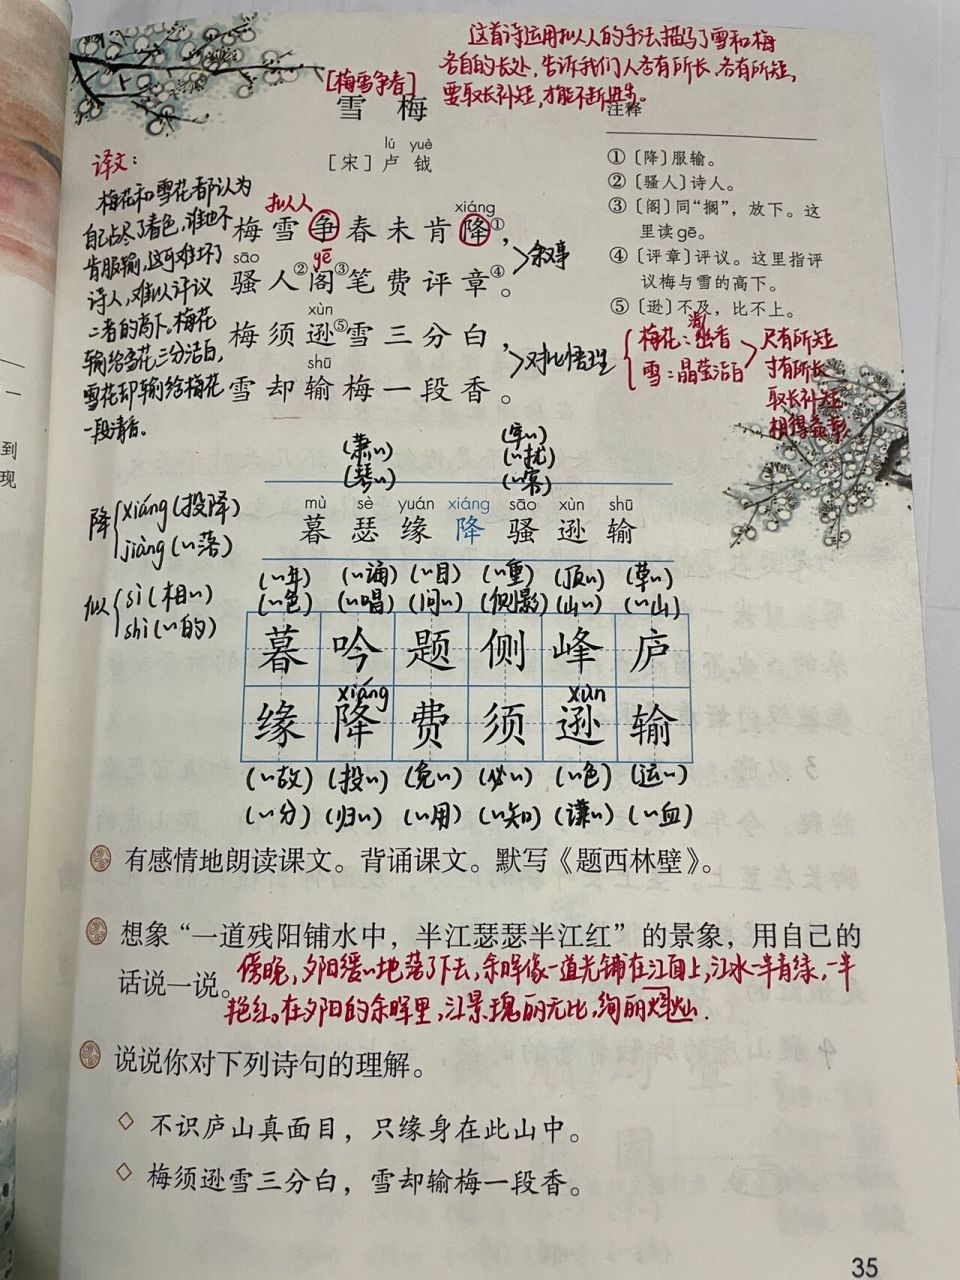 这首诗运用拟人的手法描写了雪和梅
各自的长处,告诉我们人各有所长,各有所短,
要取长补短,才能不断进步。
[梅雪争春]
雪 梅
lú yuè
[宋] 卢 钺
注释
①〔降〕服输。
②〔骚人〕诗人。
③〔阁〕同“搁”,放下。这
里读gē。
④〔评章〕评议。这里指评
议梅与雪的高下。
⑤〔逊〕不及,比不上。
译文:
梅花和雪花都认为
自己占尽了春色,谁也不
肯服输,这可难坏了
诗人,难以评议
二者的高下。梅花
输给雪花三分洁白,
雪花却输给梅花
一段清香。
拟人
xiáng
梅雪争春未肯降①,
sāo gē
骚人②阁③笔费评章④。
叙事
xùn
梅须逊⑤雪三分白,
shū
雪却输梅一段香。
对比悟理
梅花:幽香
雪:晶莹洁白
尺有所短
寸有所长
取长补短
相得益彰
(萧〃) (牢〃)
(琴〃) (〃扰)
(〃客)
降 xiáng(投降)
jiàng(〃落)
似 sì(相〃)
shì(〃的)
mù sè yuán xiáng sāo xùn shū
暮 瑟 缘 降 骚 逊 输
(〃年) (〃诵) (〃目) (〃重) (顶〃) (草〃)
(〃色) (〃唱) (问〃) (侧影) (山〃) (〃山)
暮 吟 题 侧 峰 庐
xiáng xùn
缘 降 费 须 逊 输
(〃故) (投〃) (免〃) (必〃) (〃色) (运〃)
(〃分) (归〃) (〃用) (〃知) (谦〃) (〃血)
有感情地朗读课文。背诵课文。默写《题西林壁》。
想象“一道残阳铺水中,半江瑟瑟半江红”的景象,用自己的
话说一说。
傍晚,夕阳缓〃地落了下去,余晖像一道光铺在江面上,江水一半青绿,一半
艳红。在夕阳的余晖里,江景瑰丽无比,绚丽灿烂.
说说你对下列诗句的理解。
◇ 不识庐山真面目,只缘身在此山中。
◇ 梅须逊雪三分白,雪却输梅一段香。
35
到
现